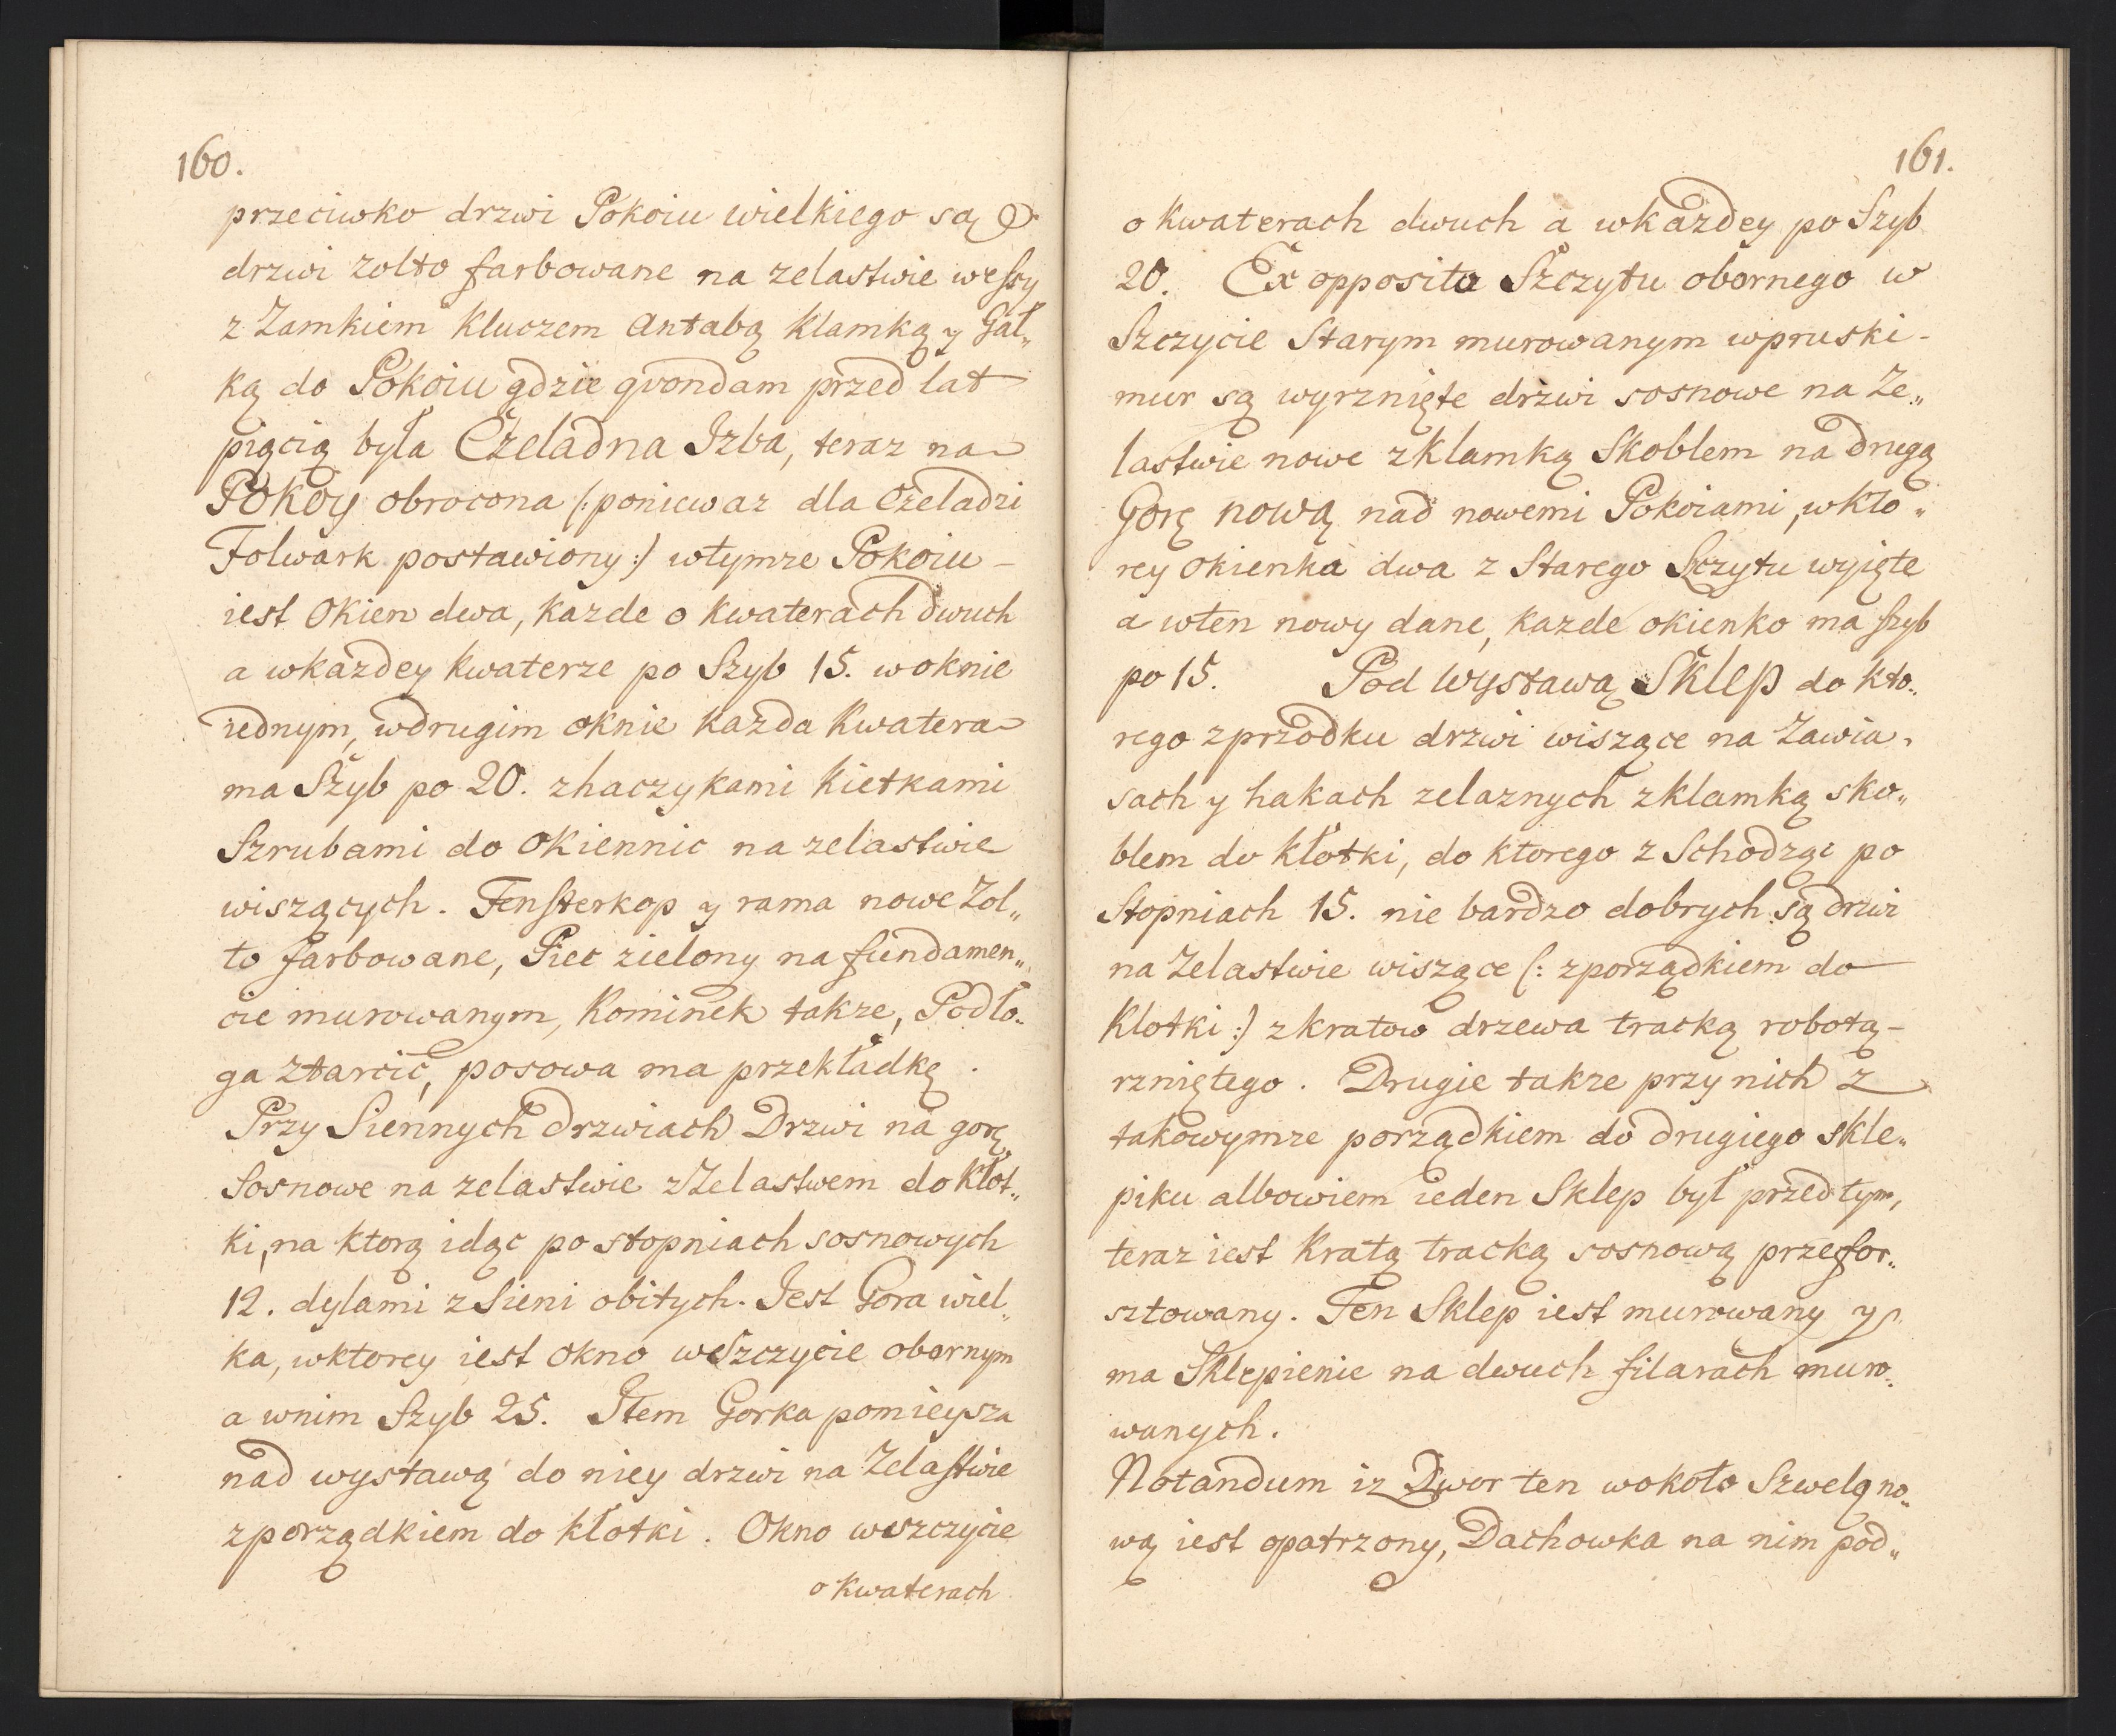 160.
przeciwko drzwi Pokoiu wielkiego są
drzwi zolto farbowane na zelastwie wessy
z Zamkiem Kluczem Antabą Klamką y Gał„
ką do Pokoiu gdzie qvondam przed lat
pięcią była Czeladna Izba, teraz na
Pokoy obrocona (: poniewaz dla Czeladzi
Folwark postawiony :) wtymze Pokoiu –
iest Okien dwa, kazde o kwaterach dwuch
a wkazdey kwaterze po Szyb 15. w oknie
iednym, wdrugim oknie kazda Kwatera
ma Szyb po 20. zhaczykami Kietkami
Szrubami do Okiennic na zelastwie
wiszących. Fensterkop y rama nowe Zol„
to farbowane, Piec zielony na fundamen„
cie murowanym, Kominek takze, Podło„
ga ztarcic, posowa ma przekładkę .
Przy Siennych Drzwiach Drzwi na gorę
Sosnowe na zelastwie zZelastwem do Kłot„
ki, na ktorą idąc po stopniach sosnowych
12. dylami z Sieni obitych. Jest Gora wiel„
ka, wktorey iest okno weSzczycie obornym
a wnim Szyb 25. Item Gorka pomieysza
nad wystawą do niey drzwi na Zelastwie
zporządkiem do kłotki . Okno wszczycie
o Kwaterach
161.
o kwaterach dwuch a wkazdey po Szyb
20. Ex opposito Szczytu obornego w
Szczycie Starym murowanym wpruski-
mur są wyrznięte drzwi sosnowe na Ze„
lastwie nowe zklamką Skoblem na drugą
Gorę nową nad nowemi Pokoiami, wkto„
rey okienka dwa z Starego Szczytu wyięte
a wten nowy dane, kazde okienko ma szyb
po 15. Pod wystawą Sklep do kto„
rego zprzodku drzwi wiszące na Zawia„
sach y hakach zelaznych zklamką sko„
blem do kłotki, do ktorego z Schodząc po
Stopniach 15. nie bardzo dobrych są drzwi
na Zelastwie wiszące (: zporządkiem do
Klotki :) zkratow drzewa tracką robotą –
rzniętego . Drugie takze przy nich z
takowymze porządkiem do drugiego skle„
piku albowiem ieden Sklep był przed tym,
teraz iest Kratą tracką sosnową przefor„
sztowany. Ten Sklep iest murowany y
ma Sklepienie na dwuch filarach muro„
wanych.
Notandum iz Dwor ten wokoło Szwelą no„
wą iest opatrzony, Dachowka na nim pod„